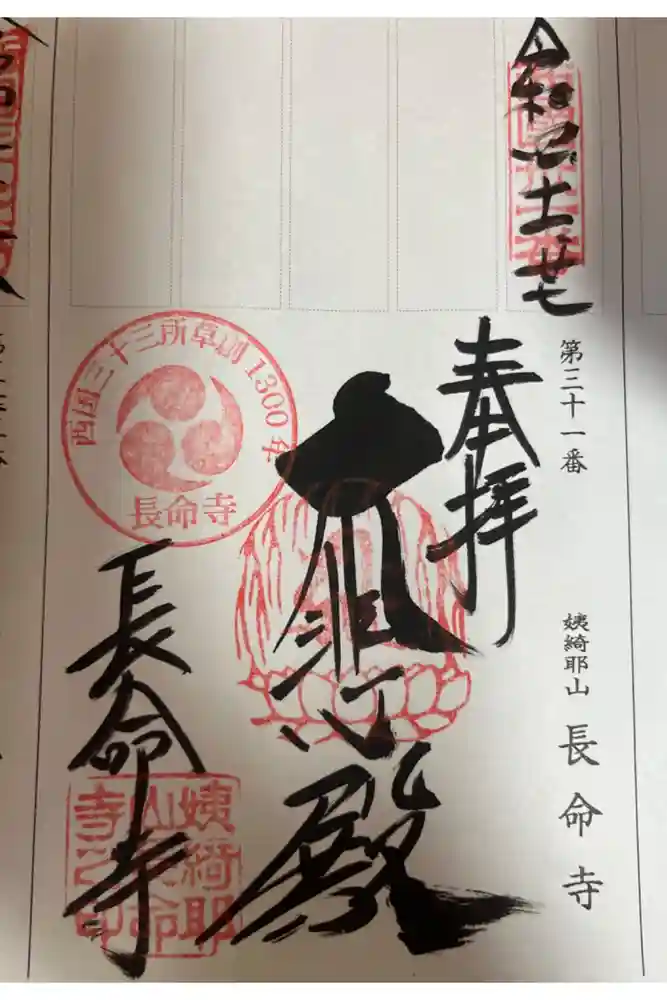 第三十一番
姨綺耶山 長命寺
奉拝
大悲殿
長命寺
西国三十三所草創1300年
長命寺
姨綺耶
山長命
寺之印